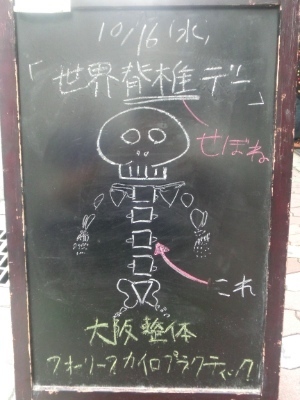 10/16(水)
「世界脊椎デー」
せぼね
これ
大阪整体
フォーリーフカイロプラクティック